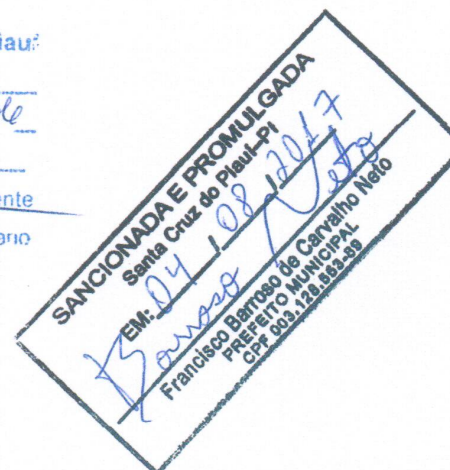 iauí
nte
ario
SANCIONADA E PROMULGADA
Santa Cruz do Piauí-PI
EM: 04 / 08 / 2017
Barroso Neto
Francisco Barroso de Carvalho Neto
PREFEITO MUNICIPAL
CPF 003.128.553-89